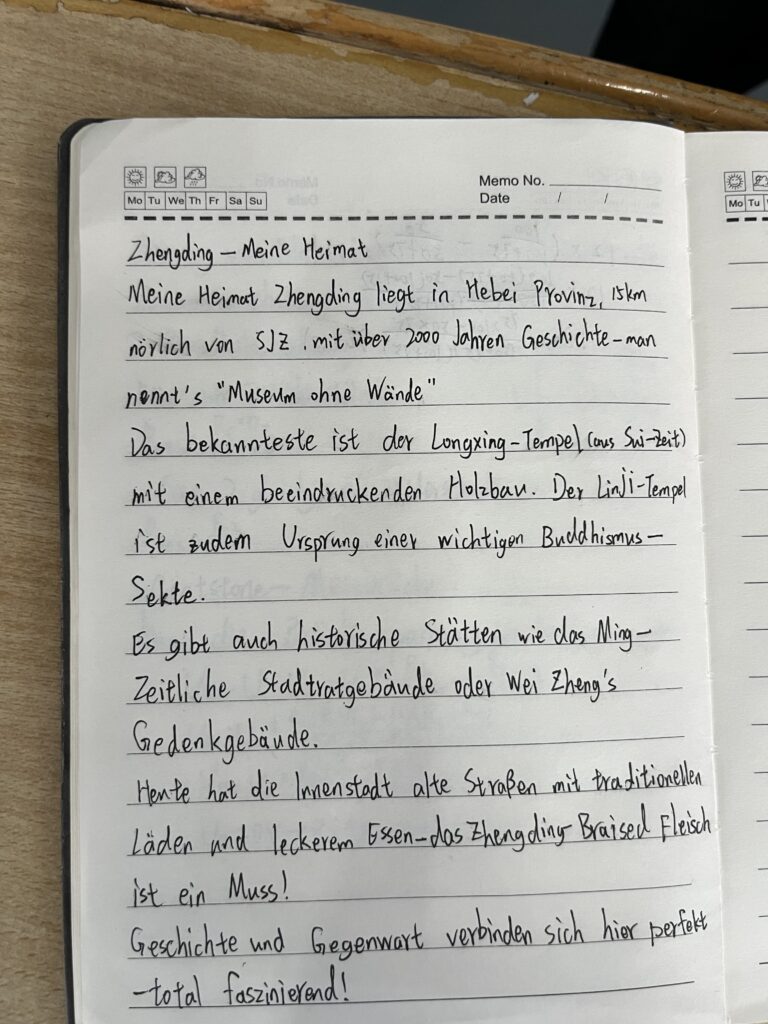 Memo No.
Date / /
Mo Tu We Th Fr Sa Su
Mo Tu
Zhengding – Meine Heimat
Meine Heimat Zhengding liegt in Hebei Provinz, 15km
nörlich von SJZ . mit über 2000 Jahren Geschichte – man
nennt's "Museum ohne Wände"
Das bekannteste ist der Longxing-Tempel (aus Sui-Zeit)
mit einem beeindruckenden Holzbau. Der LinJi-Tempel
ist zudem Ursprung einer wichtigen Buddhismus –
Sekte.
Es gibt auch historische Stätten wie das Ming –
Zeitliche Stadtratgebäude oder Wei Zheng's
Gedenkgebäude.
Heute hat die Innenstadt alte Straßen mit traditionellen
Läden und leckerem Essen – das Zhengding-Braised Fleisch
ist ein Muss!
Geschichte und Gegenwart verbinden sich hier perfekt
– total faszinierend!